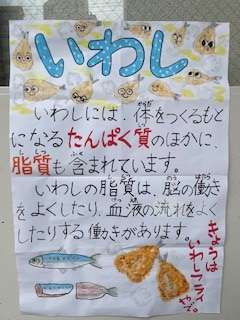 いわし
いわしには、体をつくるもと
になるたんぱく質のほかに、
脂質も含まれています。
いわしの脂質は、脳の働き
をよくしたり、血液の流れをよく
したりする働きがあります。
きょうは
いわしフライ